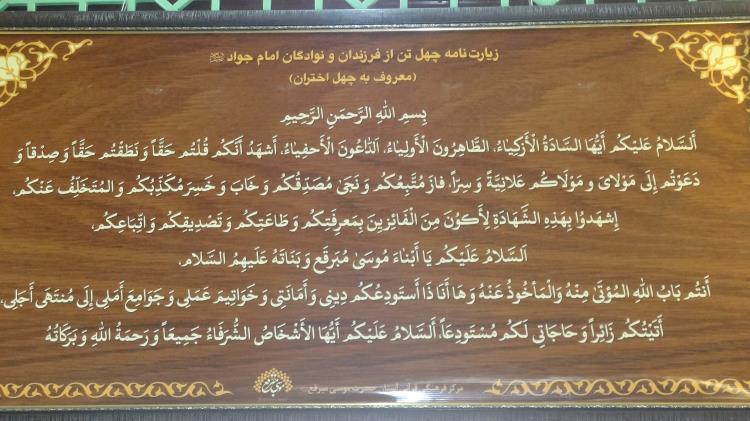 زیارت نامه چهل تن از فرزندان و نوادگان امام جواد
(معروف به چهل اختران)
بِسمِ اللهِ الرَّحمَنِ الرَّحِیمِ
اَلسَّلامُ عَلَیْکُم أَیُّهَا السَّادَةُ الْأَزکِیَاءُ، الطَّاهِرُونَ الْأَولِیَاءُ، اَلدَّاعُونَ الْأَحفِیَاءُ، أَشهَدُ أَنَّکُم قُلْتُم حَقَّاً وَ نَطَقْتُم حَقَّاً وَ صِدْقاً وَ
دَعَوْتُم إِلَى مَوْلَایَ وَ مَوْلَاکُم عَلَانِیَّةً وَ سِرَّاً، فازَ مُتَّبِعُکُم وَ نَجَیٰ مُصَدِّقُکُم وَ خَابَ وَ خَسِرَ مُکَذِّبُکُم وَ المُتَخَلِّفُ عَنْکُم،
إِشهَدُوا بِهَذِهِ الشَّهَادَةِ لِأَکُونَ مِنَ الْفَائِزِینَ بِمَعرِفَتِکُم وَ طَاعَتِکُم وَ تَصْدِیقِکُم وَ اتِّبَاعِکُم،
اَلسَلامُ عَلَیْکُم یَا أَبْنَاءَ مُوسَیٰ مُبَرقَع وَ بَنَاتَهُ عَلَیهِمُ السَّلام،
أَنتُم بَابُ اللهِ المُؤتَیٰ مِنْهُ وَالْمَأخُوذُ عَنْهُ وَ هَا أَنَا ذَا أَستَودِعُکُم دِینِی وَ أَمَانَتِی وَ خَوَاتِیمَ عَمَلِی وَ جَوَامِعَ أَمَلِی إِلَى مُنتَهَی أَجَلِی،
أَتَیْتُکُم زَائِراً وَ حَاجَاتِی لَکُم مُسْتَودِعَاً، اَلسَلامُ عَلَیْکُم أَیُّهَا الأَشْخَاصُ الشُّرَفَاءُ جَمِیعَاً وَ رَحمَةُ اللهِ وَ بَرَکَاتُهُ
مرکز فرهنگی قرآنی آستان حضرت موسی مبرقع